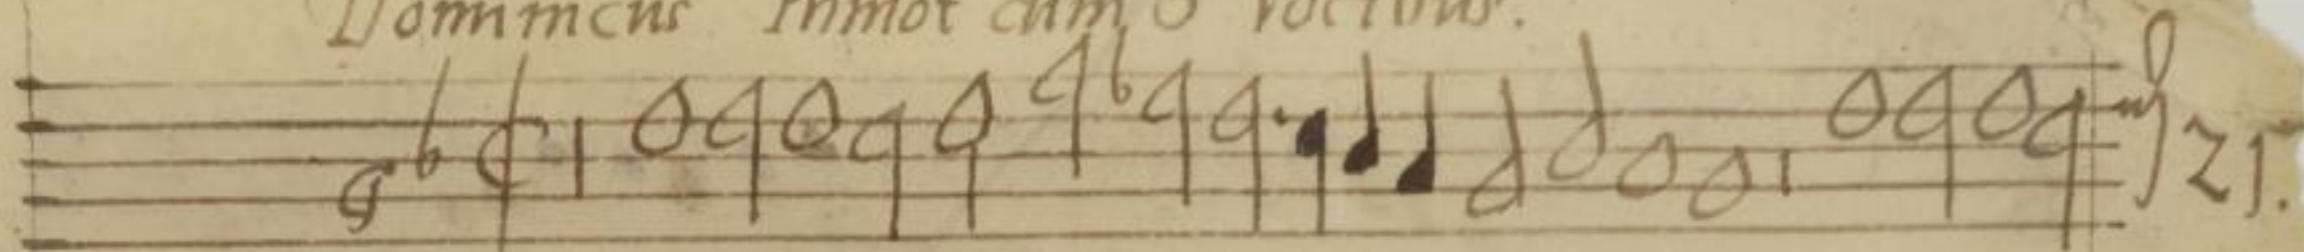 Dominicus Phinnot cum 8 vocibus.
21.